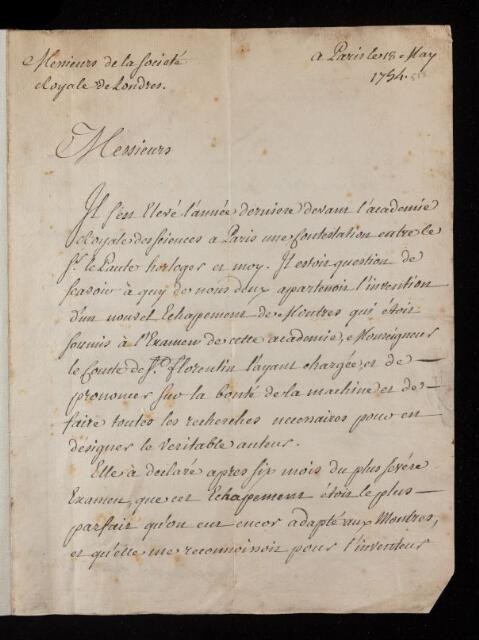 Messieurs de la Societé
Royale de Londres.
a Paris le 18 May
1754.
Messieurs
Il s'en Elevé l'année derniere devant l'academie
Royale des siences a Paris une Contestation entre le
Sr. le Paute horloger et moy. Il estoit question de
scavoir à quy de nous deux apartenoit l'invention
d'un nouvel Echapement de Montres qui étoit
soumis à l'Examen de cette academie, Monseigneur
le Comte de St. Florentin l'ayant chargée, et de —
prononcer sur la bonté de la machine et de —
faire toutes les recherches necessaires pour en
designer le veritable auteur.
Elle à declaré apres six mois du plus sévére
Examen, que cet Echapement étoit le plus —
parfait qu'on eut encor adapté aux Montres,
et qu'elle me reconnoissoit pour l'inventeur